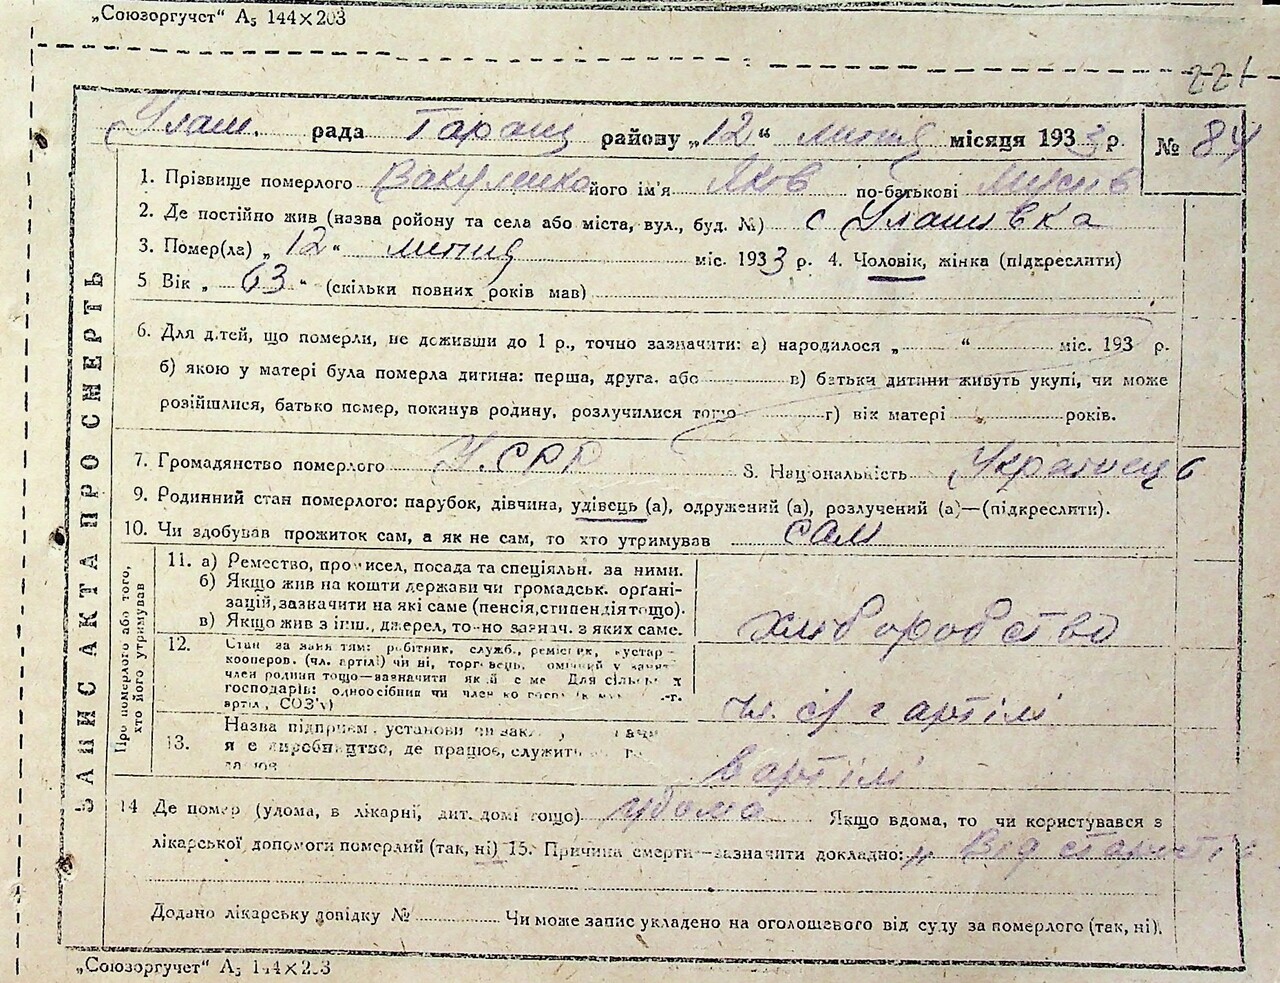 „Союзоргучет“ А₅ 144×203
221
Улаш. рада Таращ району „12“ липня місяця 1933 р. № 84
1. Прізвище померлого Вакуленко його ім'я Яков по-батькові
2. Де постійно жив (назва ройону та села або міста, вул., буд. №) с Улашівка
3. Помер(ла) „12“ липня міс. 1933 р. 4. Чоловік, жінка (підкреслити)
5 Вік „63“ (скільки повних років мав)
6. Для дітей, що померли, не доживши до 1 р., точно зазначити: а) народилося „ “ міс. 193 р.
б) якою у матері була померла дитина: перша, друга. або в) батьки дитини живуть укупі, чи може
розійшлися, батько помер, покинув родину, розлучилися тощо г) вік матері років.
7. Громадянство померлого У.СРР 8. Національність Українець
9. Родинний стан померлого: парубок, дівчина, удівець (а), одружений (а), розлучений (а)—(підкреслити).
10. Чи здобував прожиток сам, а як не сам, то хто утримував сам
ЗАПИС АКТА ПРО СМЕРТЬ
Про померлого або того,
хто його утримував
11. а) Ремество, промисел, посада та спеціяльн. за ними.
б) Якщо жив на кошти держави чи громадськ. орґані-
зацій, зазначити на які саме (пенсія, стипендія тощо).
в) Якщо жив з інш., джерел, то-но зазнач. з яких саме.
хліборобство
12. Стан за заняттям: робітник, служб., ремісник, кустар
кооперов. (чл. артілі) чи ні, торговець,
член родини тощо—зазначити Для сільськ
господарів: одноосібник чи член
артіл, СОЗ'у)
чл. с/г артілі
13. Назва підприєм. установи чи
виробництво, де працює, служить
в артілі
14 Де помер (удома, в лікарні, дит. домі тощо) удома Якщо вдома, то чи користувався з
лікарської допомоги померлий (так, ні) 15. Причина смерти—зазначити докладно: Від старості
Додано лікарську довідку № Чи може запис укладено на оголошевого від суду за померлого (так, ні).
„Союзоргучет“ А₅ 144×203